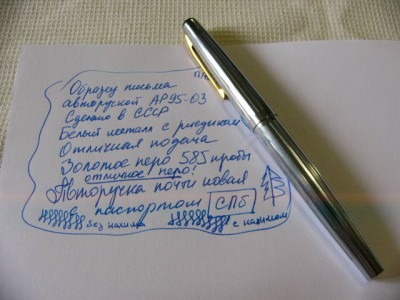 Образец письма
авторучкой АР95-03
Сделано в СССР
Белый металл с рисунком
Отличная подача
Золотое перо 585 пробы
отличное перо!
Авторучка почти новая
с паспортом СПб
без нажима с нажимом